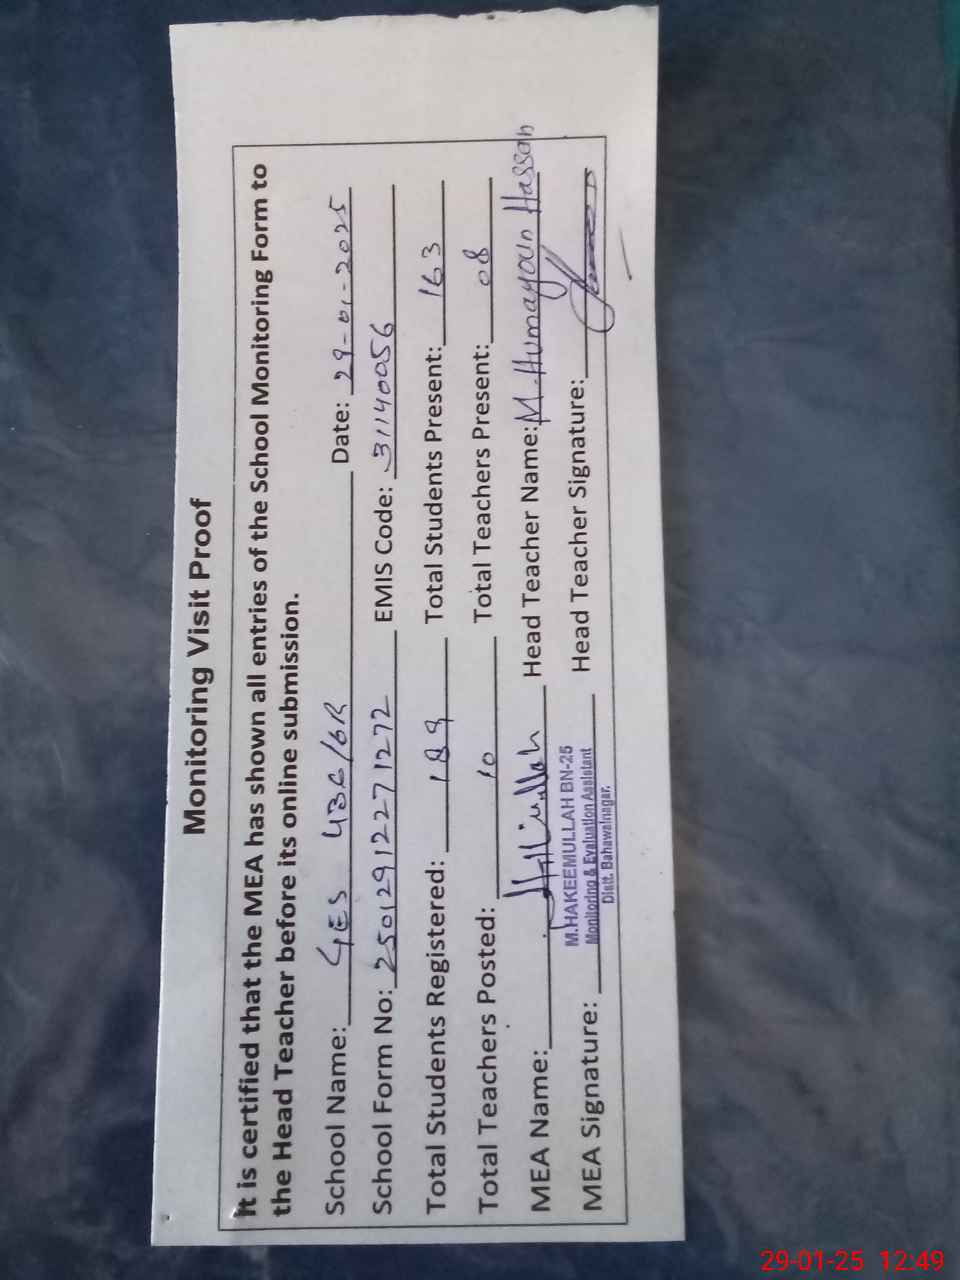 Monitoring Visit Proof
It is certified that the MEA has shown all entries of the School Monitoring Form to
the Head Teacher before its online submission.
School Name: GES 436/6R Date: 29-01-2025
School Form No: 250129122271272 EMIS Code: 31140056
Total Students Registered: 189 Total Students Present: 163
Total Teachers Posted: 10 Total Teachers Present: 08
MEA Name: Head Teacher Name: M. Humayoun Hassan
M.HAKEEMULLAH BN-25
Monitoring & Evaluation Assistant
Distt. Bahawalnagar.
MEA Signature: Head Teacher Signature:
29-01-25 12:49